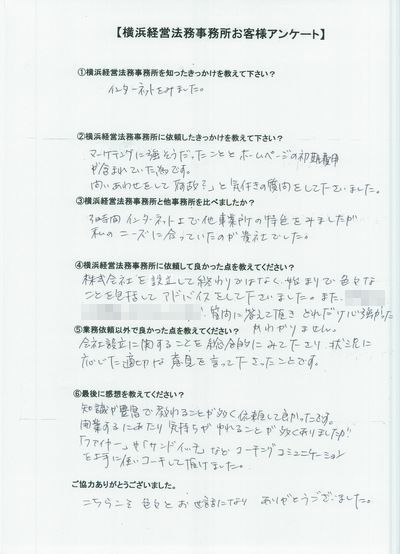 【横浜経営法務事務所お客様アンケート】
①横浜経営法務事務所を知ったきっかけを教えて下さい?
インターネットをみました。
②横浜経営法務事務所に依頼したきっかけを教えて下さい?
マーケティングに強そうだったこととホームページの初期費用
が含まれていた為です。
問いあわせをして「何故?」と気付きの質問をして下さいました。
③横浜経営法務事務所と他事務所を比べましたか?
3時間インターネット上で他事業所の特色をみましたが
私のニーズに合っていたのが貴社でした。
④横浜経営法務事務所に依頼して良かった点を教えてください?
株式会社を設立して終わりではなく、始まりで色々な
ことを包括してアドバイスをして下さいました。また、
質問に答えて頂き どれだけ心強かった
かわかりません。
⑤業務依頼以外で良かった点を教えてください?
会社設立に関することを総合的にみて下さり、状況に
応じた適切な意見を言って下さったことです。
⑥最後に感想を教えてください?
知識が豊富で教わることが多く依頼して良かったです。
開業するにあたり気持ちがゆれることが多くありましたが
「ファイヤー」や「サンドイッチ」などコーチングコミュニケーション
を上手に使いコーチして頂けました。
ご協力ありがとうございました。
こちらこそ色々とお世話になり ありがとうございました。